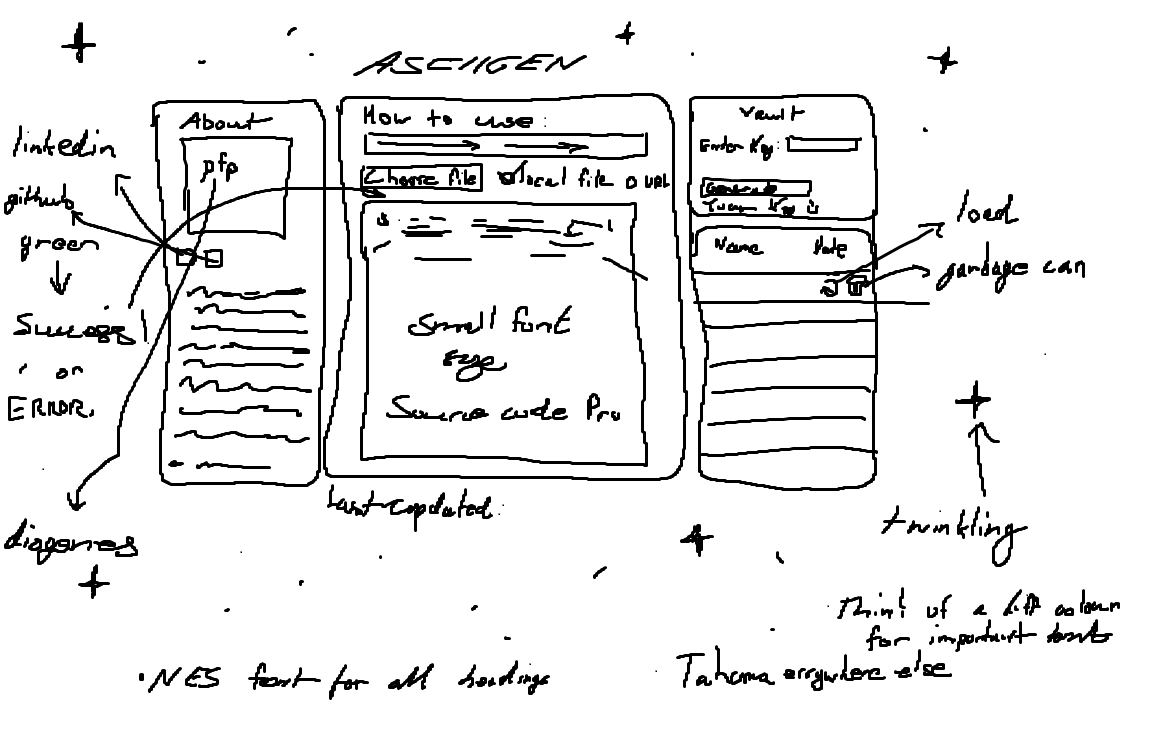 ASCIIGEN
About
pfp
linkedin
github
green
Success!
or
ERROR.
diogenes
How to use:
Choose file
local file
URL
Small font
Source code Pro
Last updated:
Vault
Enter Key:
Generate
Name
Date
load
garbage can
twinkling
Think of a diff colour
for important texts
• NES font for all headings
Tahoma everywhere else